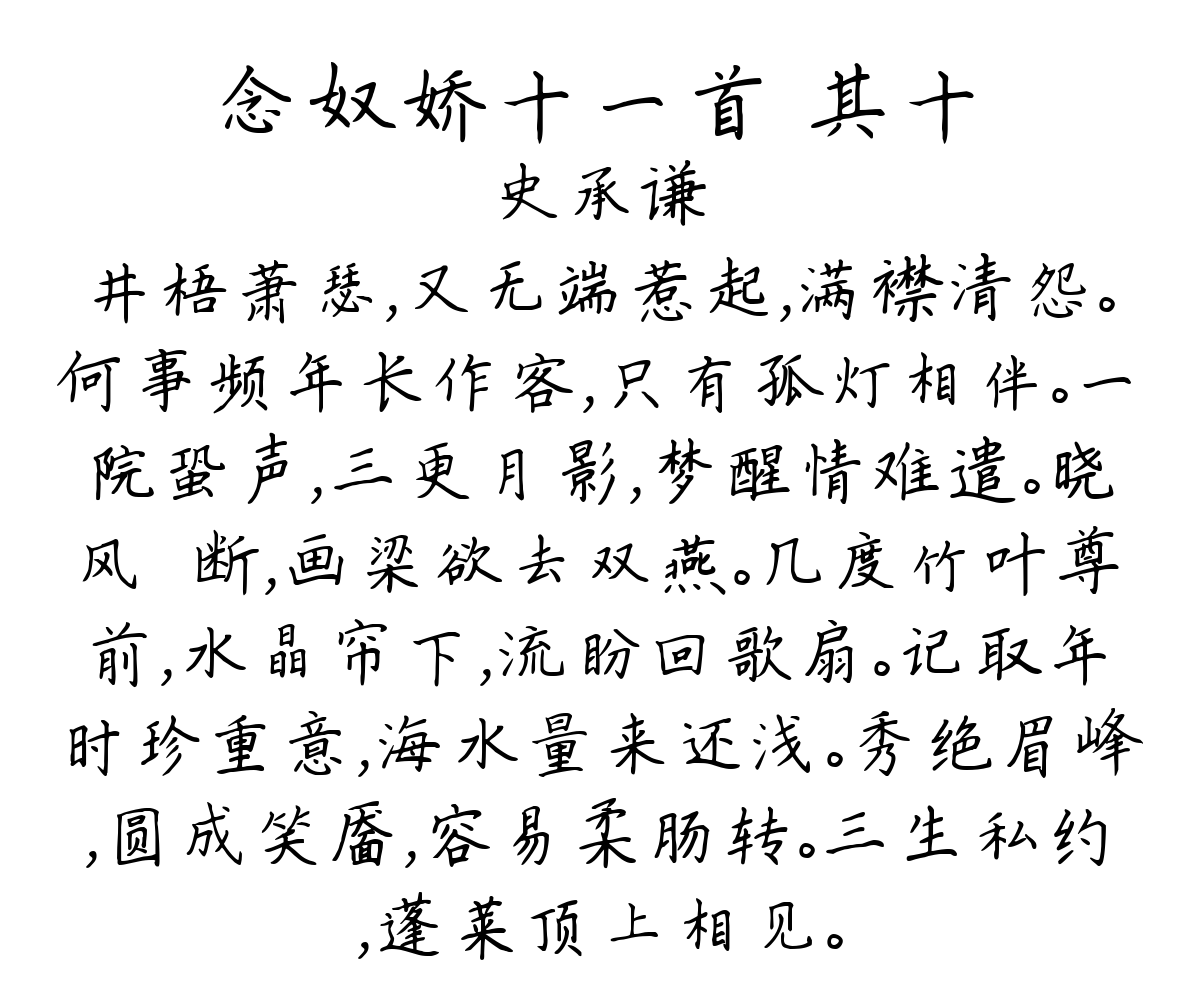 念奴娇十一首 其十
史承谦
井梧萧瑟,又无端惹起,满襟清怨。
何事频年长作客,只有孤灯相伴。一
院蛩声,三更月影,梦醒情难遣。晓
风 断,画梁欲去双燕。几度竹叶尊
前,水晶帘下,流盼回歌扇。记取年
时珍重意,海水量来还浅。秀绝眉峰
,圆成笑靥,容易柔肠转。三生私约
,蓬莱顶上相见。